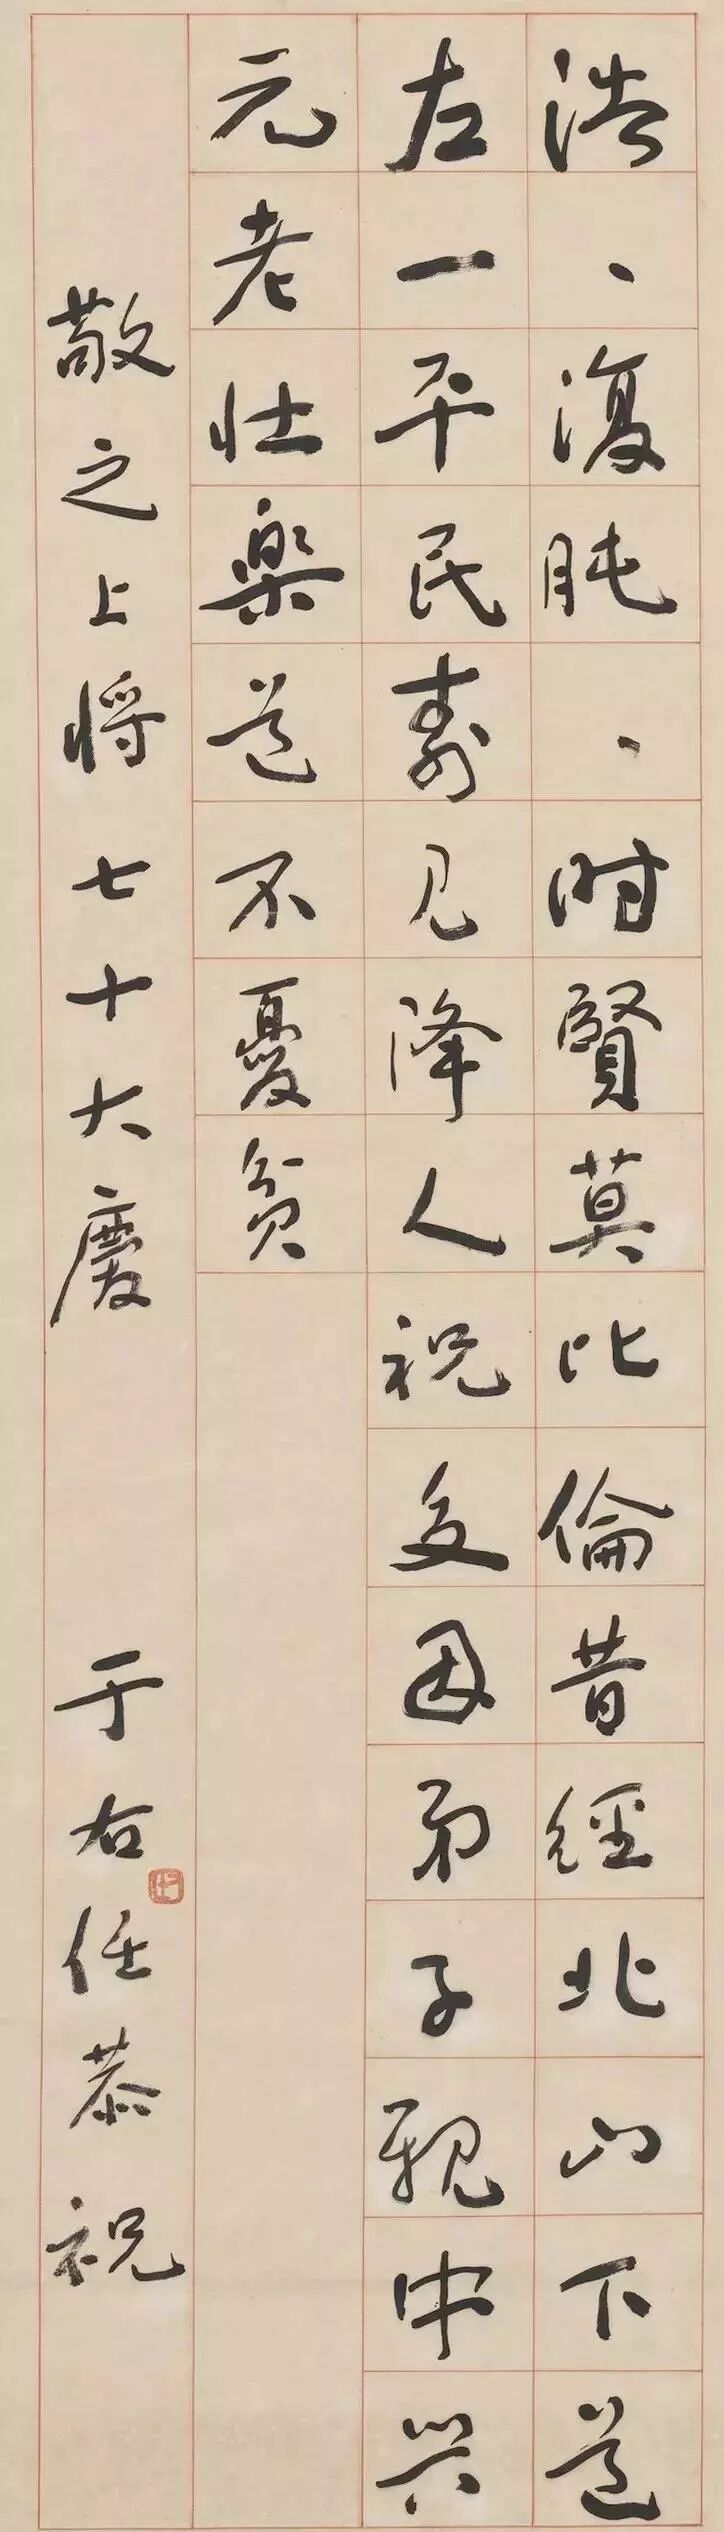 浩、復肫、時賢莫比倫昔經北山下道
左一平民壽見降人祝文因弟子親中興
元老壯樂道不憂貧
敬之上將七十大慶
于右任恭祝